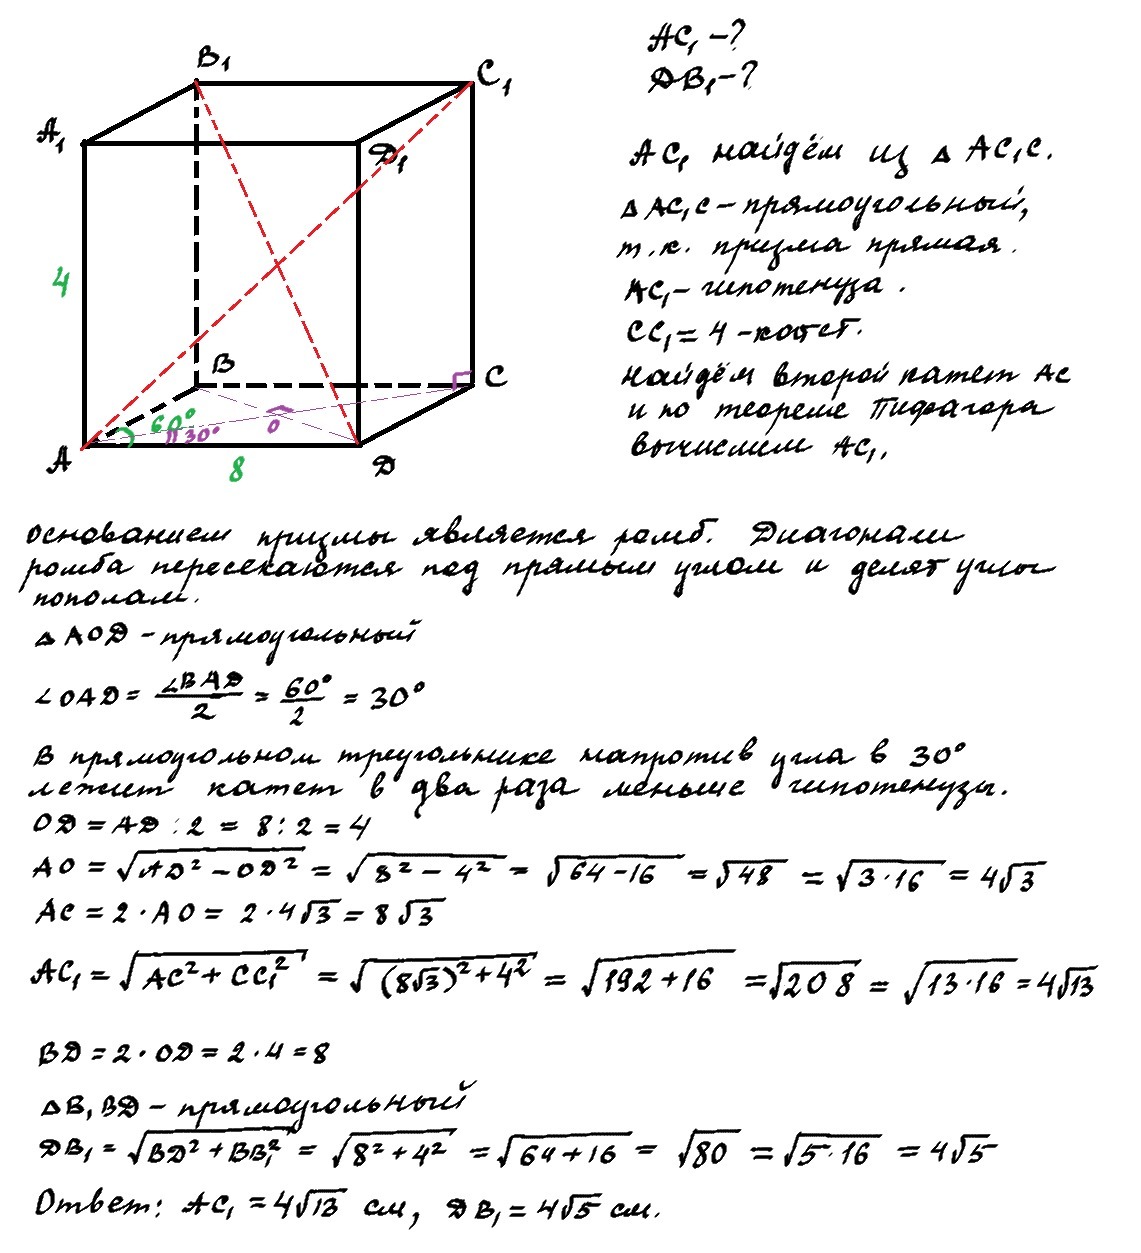 B₁
C₁
A₁
D₁
4
B
C
60°
30°
O
A
D
8
AC₁ - ?
DB₁ - ?
AC₁ найдём из △ AC₁C.
△ AC₁C - прямоугольный,
т.к. призма прямая.
AC₁ - гипотенуза.
CC₁ = 4 - катет.
Найдём второй катет AC
и по теореме Пифагора
вычислим AC₁.
Основанием призмы является ромб. Диагонали
ромба пересекаются под прямым углом и делят углы
пополам.
△ AOD - прямоугольный
∠OAD = ∠BAD/2 = 60°/2 = 30°
В прямоугольном треугольнике напротив угла в 30°
лежит катет в два раза меньше гипотенузы.
OD = AD : 2 = 8 : 2 = 4
AO = √(AD² - OD²) = √(8² - 4²) = √(64 - 16) = √48 = √(3·16) = 4√3
AC = 2 · AO = 2 · 4√3 = 8√3
AC₁ = √(AC² + CC₁²) = √((8√3)² + 4²) = √(192 + 16) = √208 = √(13·16) = 4√13
BD = 2 · OD = 2 · 4 = 8
△B₁BD - прямоугольный
DB₁ = √(BD² + BB₁²) = √(8² + 4²) = √(64 + 16) = √80 = √(5·16) = 4√5
Ответ: AC₁ = 4√13 см, DB₁ = 4√5 см.